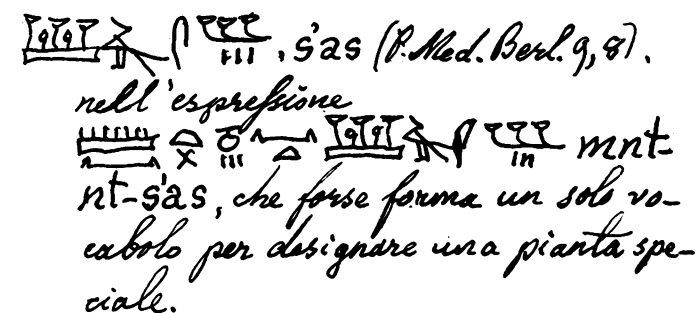 , śas (P. Med. Berl. 9,8).
nell'espressione
mnt-
nt-śas, che forse forma un solo vo-
cabolo per designare una pianta spe-
ciale.